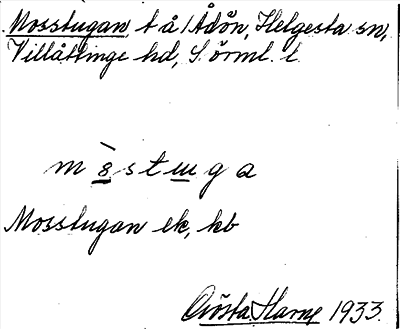 Mosstugan, t å /Ådön, Helgesta sn,
Villåttinge hd, S. örml. l.
m s t u g a
Mosstugan ek, kb
Gösta Harne 1933.